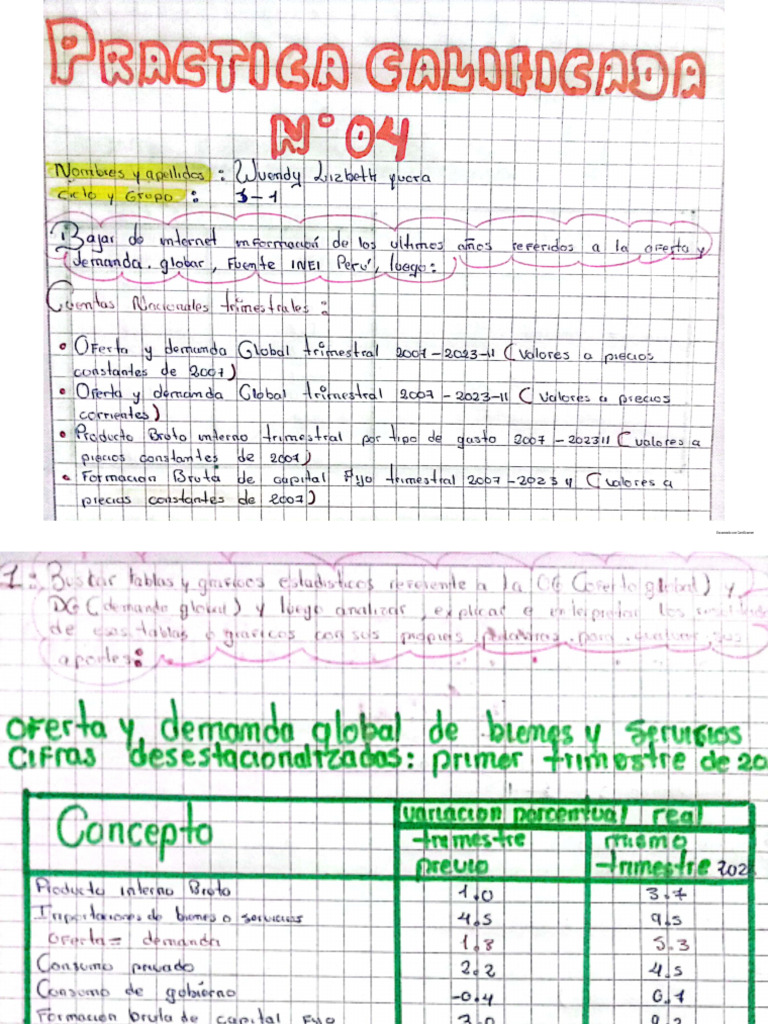 PRACTICA CALIFICADA
N° 04
Nombres y apellidos : Wuendy Lizbeth yucra
Ciclo y Grupo : 3-1
Bajar de internet informació de los ultimos años referidos a la oferta y
demanda. globar, Fuente INEI Perú, luego:
Cuentas Nacionales trimestrales :
• Oferta y demanda Global trimestral 2007-2023-II (valores a precios
constantes de 2007)
• Oferta y demanda Global trimestral 2007-2023-II (valores a precios
corrientes)
• Producto Broto interno trimestral por tipo de gasto 2007-2023II (valores a
precios constantes de 2007)
• Formacion Bruta de capital Fyo trimestral 2007-2023 (valores a
precios constantes de 2007)
Escaneado con CamScanner
1: Buscar tablas y graficos estadisticos referente a la OG (oferta global) y
DG (demanda global) y luego analizar, explicar e interpretar los
de esas tablas o graficos con sus propias palabras para sus
aportes:
oferta y demanda global de bienes y servicios
cifras desestacionalizadas: primer trimestre de 20
Concepto
variacion porcentual real
trimestre previo
mismo trimestre 202
Producto interno Broto 1.0 3.7
Importaciones de bienes o servicios 4.5 9.5
oferta = demanda 1.8 5.3
Consumo privado 2.2 4.5
Consumo de gobierno -0.4 0.1
Formacion bruta de capital Fyo 3.0 9.2